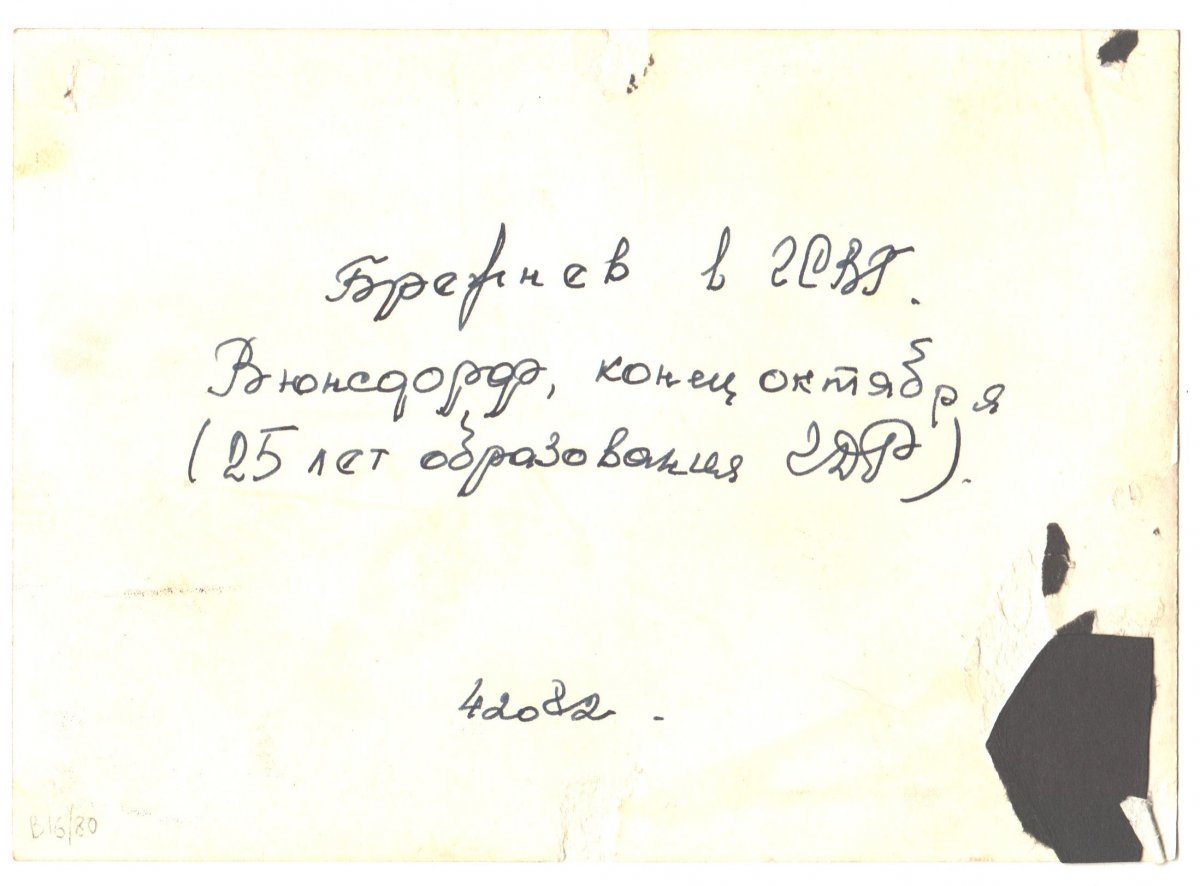 Брежнев в ГСВГ.
Вюнсдорф, конец октября
(25 лет образования ГДР).
42082.
В15/80